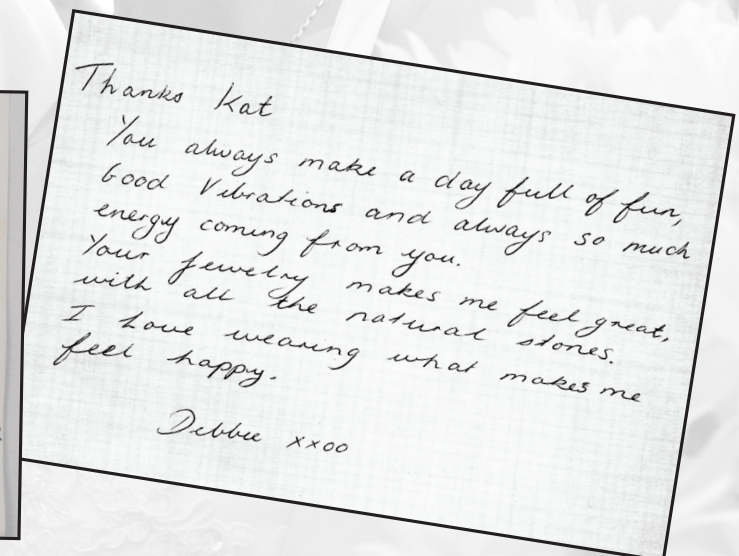 Thanks Kat
You always make a day full of fun,
Good Vibrations and always so much
energy coming from you.
Your jewelry makes me feel great,
with all the natural stones.
I Love wearing what makes me
feel happy.
Debbie xxoo